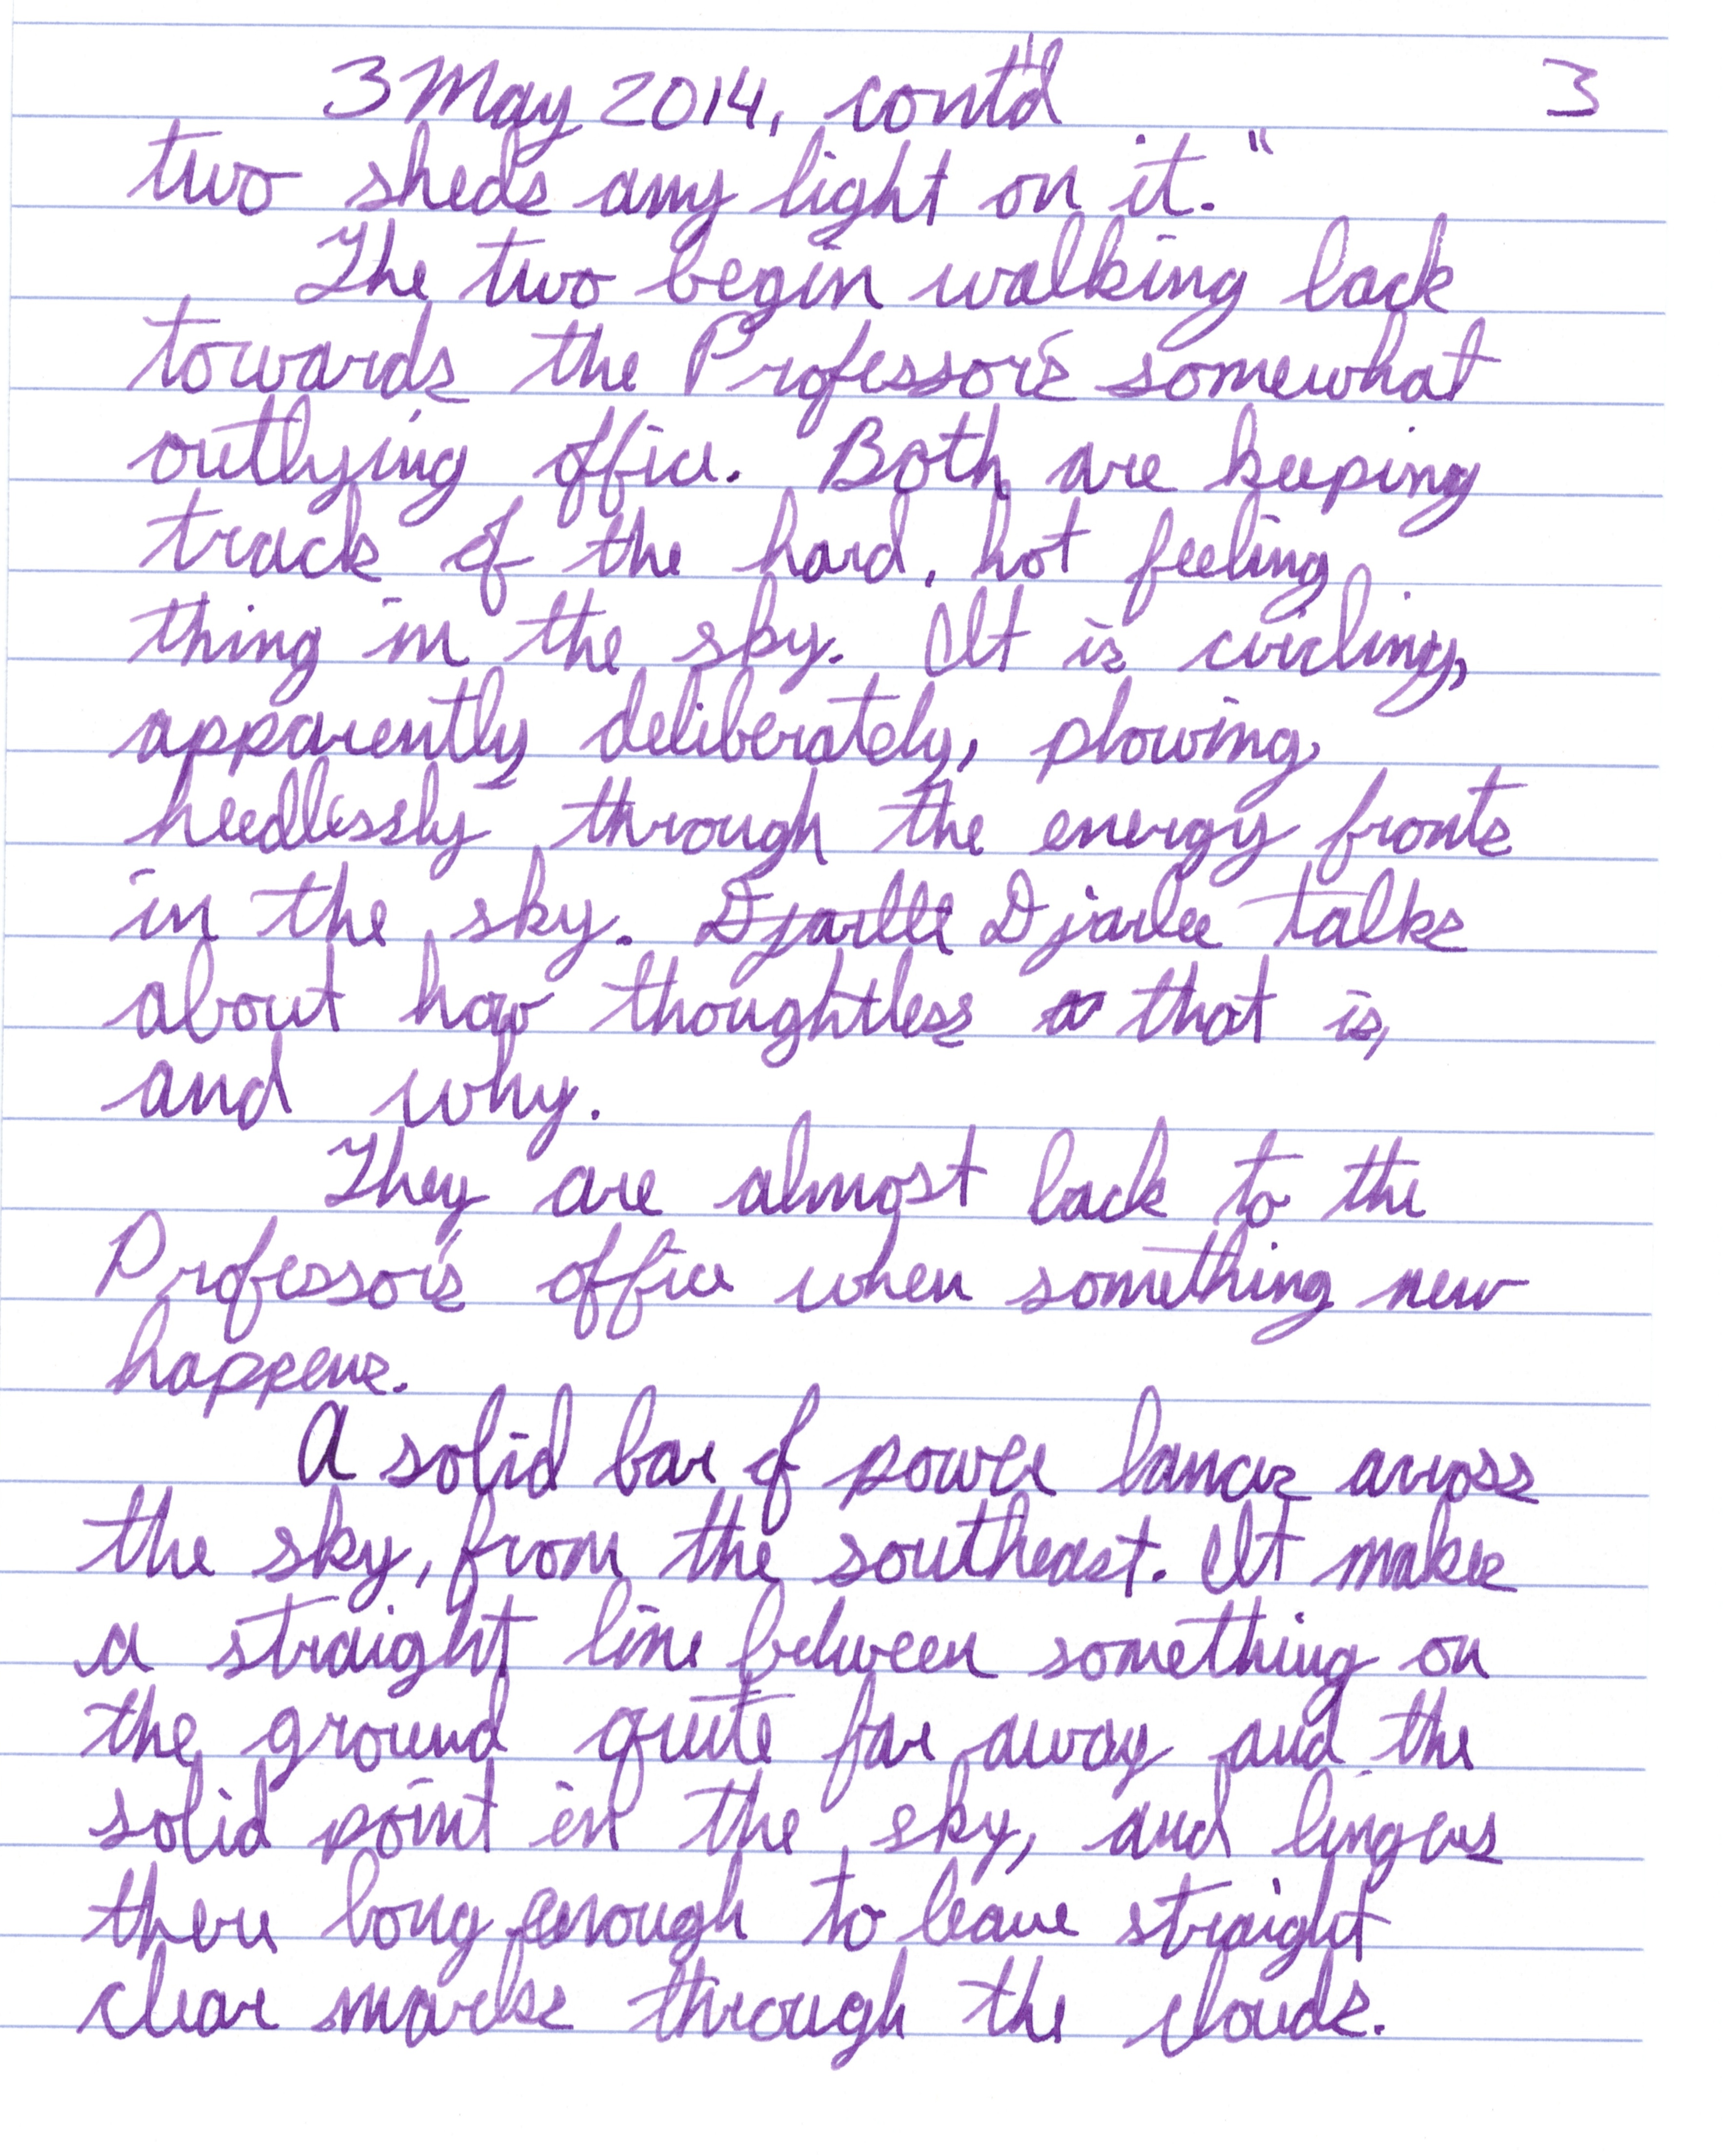 3 May 2014, cont'd 3
two sheds any light on it."
The two begin walking back
towards the Professor's somewhat
outlying office. Both are keeping
track of the hard, hot feeling
thing in the sky. It is circling,
apparently deliberately, plowing
heedlessly through the energy fronts
in the sky. Djarlli Djarlee talks
about how thoughtless that is,
and why.
They are almost back to the
Professor's office when something new
happens.
A solid bar of power lances across
the sky, from the southeast. It makes
a straight line between something on
the ground quite far away and the
solid point in the sky, and lingers
there long enough to leave straight
clear marks through the clouds.